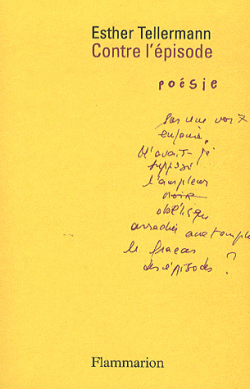 Esther Tellermann
Contre l'épisode
poésie
Par une voix
enfouie,
N'avait-je
supposé
l'ampleur
noire
oblique
arrachée aux temples
le fracas
des épisodes ?
Flammarion